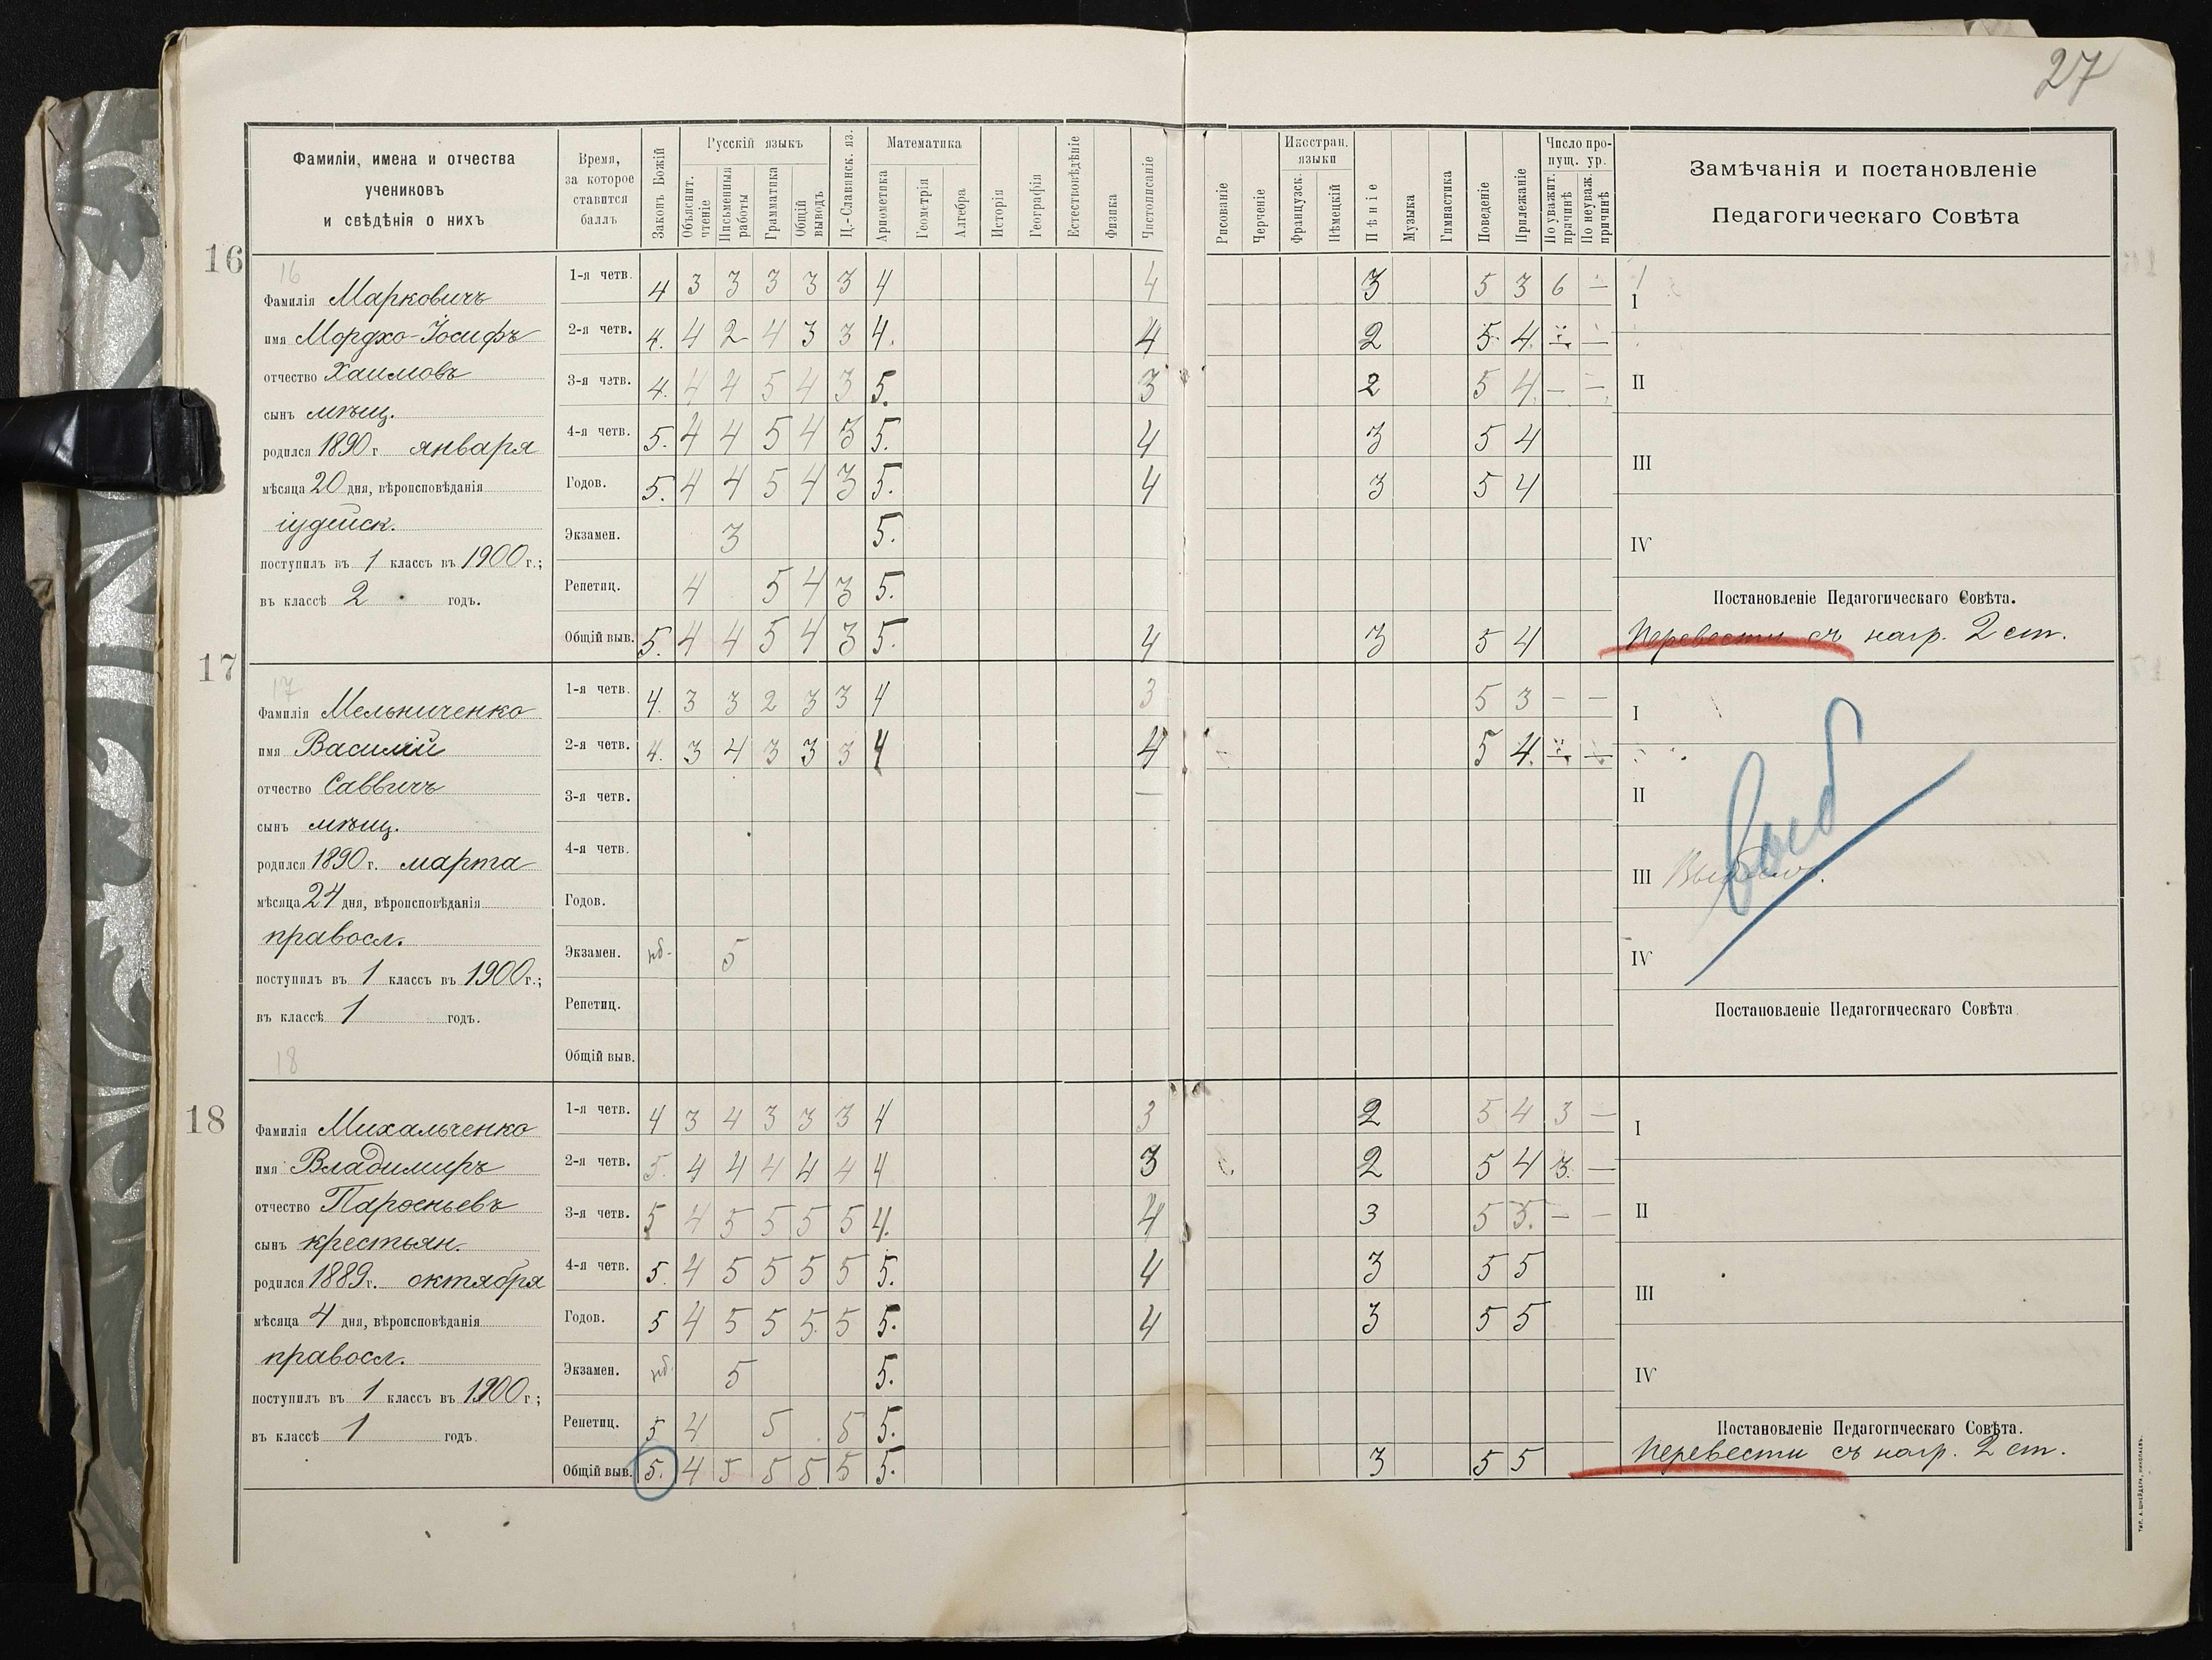 27
Фамиліи, имена и отчества
учениковъ
и свѣдѣнія о нихъ
Время,
за которое
ставится
баллъ
Законъ Божій
Русскій языкъ
Объяснит.
чтеніе
Письменныя
работы
Грамматика
Общій
выводъ
Ц.-Славянск. яз.
Математика
Ариѳметика
Геометрія
Алгебра
Исторія
Географія
Естествовѣдѣніе
Физика
Чистописаніе
Рисованіе
Черченіе
Иностран.
языки
Французск.
Нѣмецкій
Пѣніе
Музыка
Гимнастика
Поведеніе
Прилежаніе
Число про-
пущ. ур.
По уважит.
причинѣ
По неуваж.
причинѣ
Замѣчанія и постановленіе
Педагогическаго Совѣта
16
16
Фамилія Марковичъ
имя Мордхо-Іосифъ
отчество Хаимовъ
сынъ мѣщ.
родился 1890 г. января
мѣсяца 20 дня, вѣроисповѣданія
іудейск.
поступилъ въ 1 классъ въ 1900 г.;
въ классѣ 2 годъ.
1-я четв. 4 3 3 3 3 3 4 4 3 5 3 6 —
2-я четв. 4. 4 2 4 3 3 4. 4 2 5 4. — —
3-я четв. 4. 4 4 5 4 3 5. 3 2 5 4. — —
4-я четв. 5. 4 4 5 4 3 5. 4 3 5 4
Годов. 5. 4 4 5 4 3 5. 4 3 5 4
Экзамен. 3 5.
Репетиц. 4 5 4 3 5.
Общій выв. 5. 4 4 5 4 3 5. 4 3 5 4
I
II
III
IV
Постановленіе Педагогическаго Совѣта.
Перевести съ нагр. 2 ст.
17
17
Фамилія Мельниченко
имя Василій
отчество Саввичъ
сынъ мѣщ.
родился 1890 г. марта
мѣсяца 24 дня, вѣроисповѣданія
правосл.
поступилъ въ 1 классъ въ 1900 г.;
въ классѣ 1 годъ.
1-я четв. 4. 3 3 2 3 3 4 3 5 3 — —
2-я четв. 4. 3 4 3 3 3 4 4 5 4. — —
3-я четв. —
4-я четв.
Годов.
Экзамен. нб. 5
Репетиц.
Общій выв.
I
II
III Выбылъ.
выб
IV
Постановленіе Педагогическаго Совѣта
18
18
Фамилія Михальченко
имя Владимиръ
отчество Парѳеньевъ
сынъ крестьян.
родился 1889 г. октября
мѣсяца 4 дня, вѣроисповѣданія
правосл.
поступилъ въ 1 классъ въ 1900 г.;
въ классѣ 1 годъ.
1-я четв. 4 3 4 3 3 3 4 3 2 5 4 3 —
2-я четв. 5. 4 4 4 4 4 4 3 2 5 4 3. —
3-я четв. 5 4 5 5 5 5 4. 4 3 5 5. — —
4-я четв. 5. 4 5 5 5 5 5. 4 3 5 5
Годов. 5 4 5 5 5. 5 5. 4 3 5 5
Экзамен. нб. 5 5.
Репетиц. 5 4 5 5 5.
Общій выв. 5. 4 5 5 5 5 5. 3 5 5
I
II
III
IV
Постановленіе Педагогическаго Совѣта.
Перевести съ нагр. 2 ст.
ТИП. А. ШНЕЙДЕРА, НИКОЛАЕВЪ.